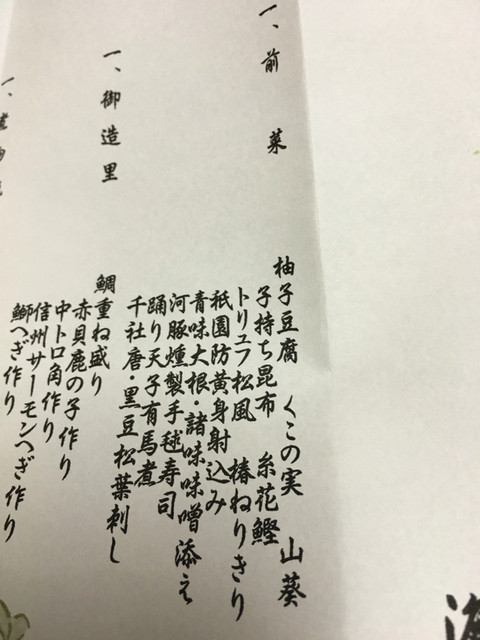 一、前菜
柚子豆腐 くこの実 山葵
子持ち昆布 糸花鰹
トリュフ松風 椿ねりきり
祇園防黄身射込み
青味大根・諸味味噌添え
河豚燻製手毬寿司
踊り天子有馬煮
千社唐・黒豆松葉刺し
一、御造里
鯛重ね盛り
赤貝鹿の子作り
中トロ角作り
信州サーモンへぎ作り
鰤へぎ作り
一、